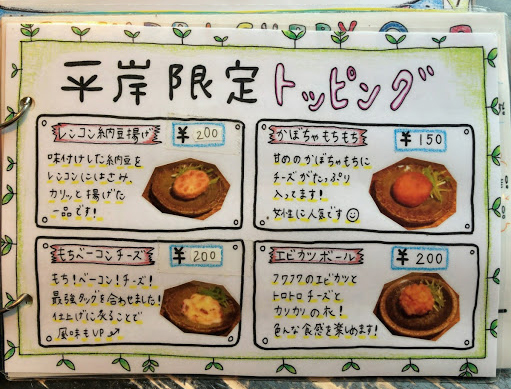 平岸限定トッピング
レンコン納豆揚げ ¥200
味付けした納豆を
レンコンにはさみ
カリッと揚げた
一品です!
かぼちゃもちもち ¥150
甘めのかぼちゃもちに
チーズがたっぷり
入ってます!
女性に人気です☺
もちベーコンチーズ ¥200
もち!ベーコン!チーズ!
最強タッグを合わせました!
仕上げに炙ることで
風味もUP↗
エビカツボール ¥200
フワフワのエビカツと
トロトロチーズと
カリカリの衣!
色んな食感を楽しめます!